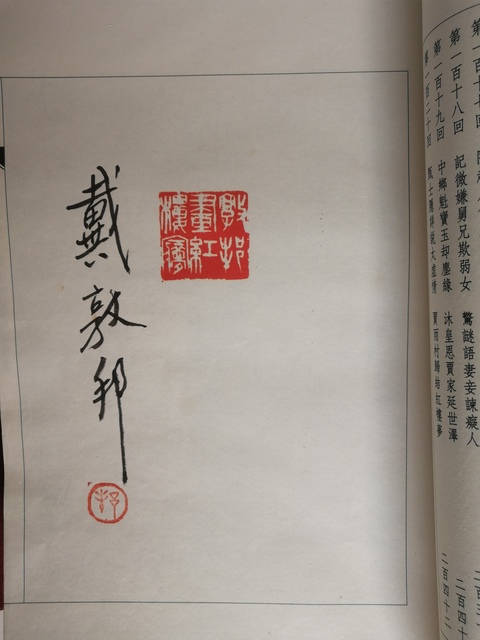 第一百十八回 記微嫌舅兄欺弱女 驚謎語妻妾諫癡人 二百四十
第一百十九回 中鄉魁寶玉却塵緣 沐皇恩賈家延世澤 二百四十
第一百二十回 甄士隱詳說太虛情 賈雨村歸結紅樓夢 二百四十二
敦邦
畫紅
樓夢
戴敦邦